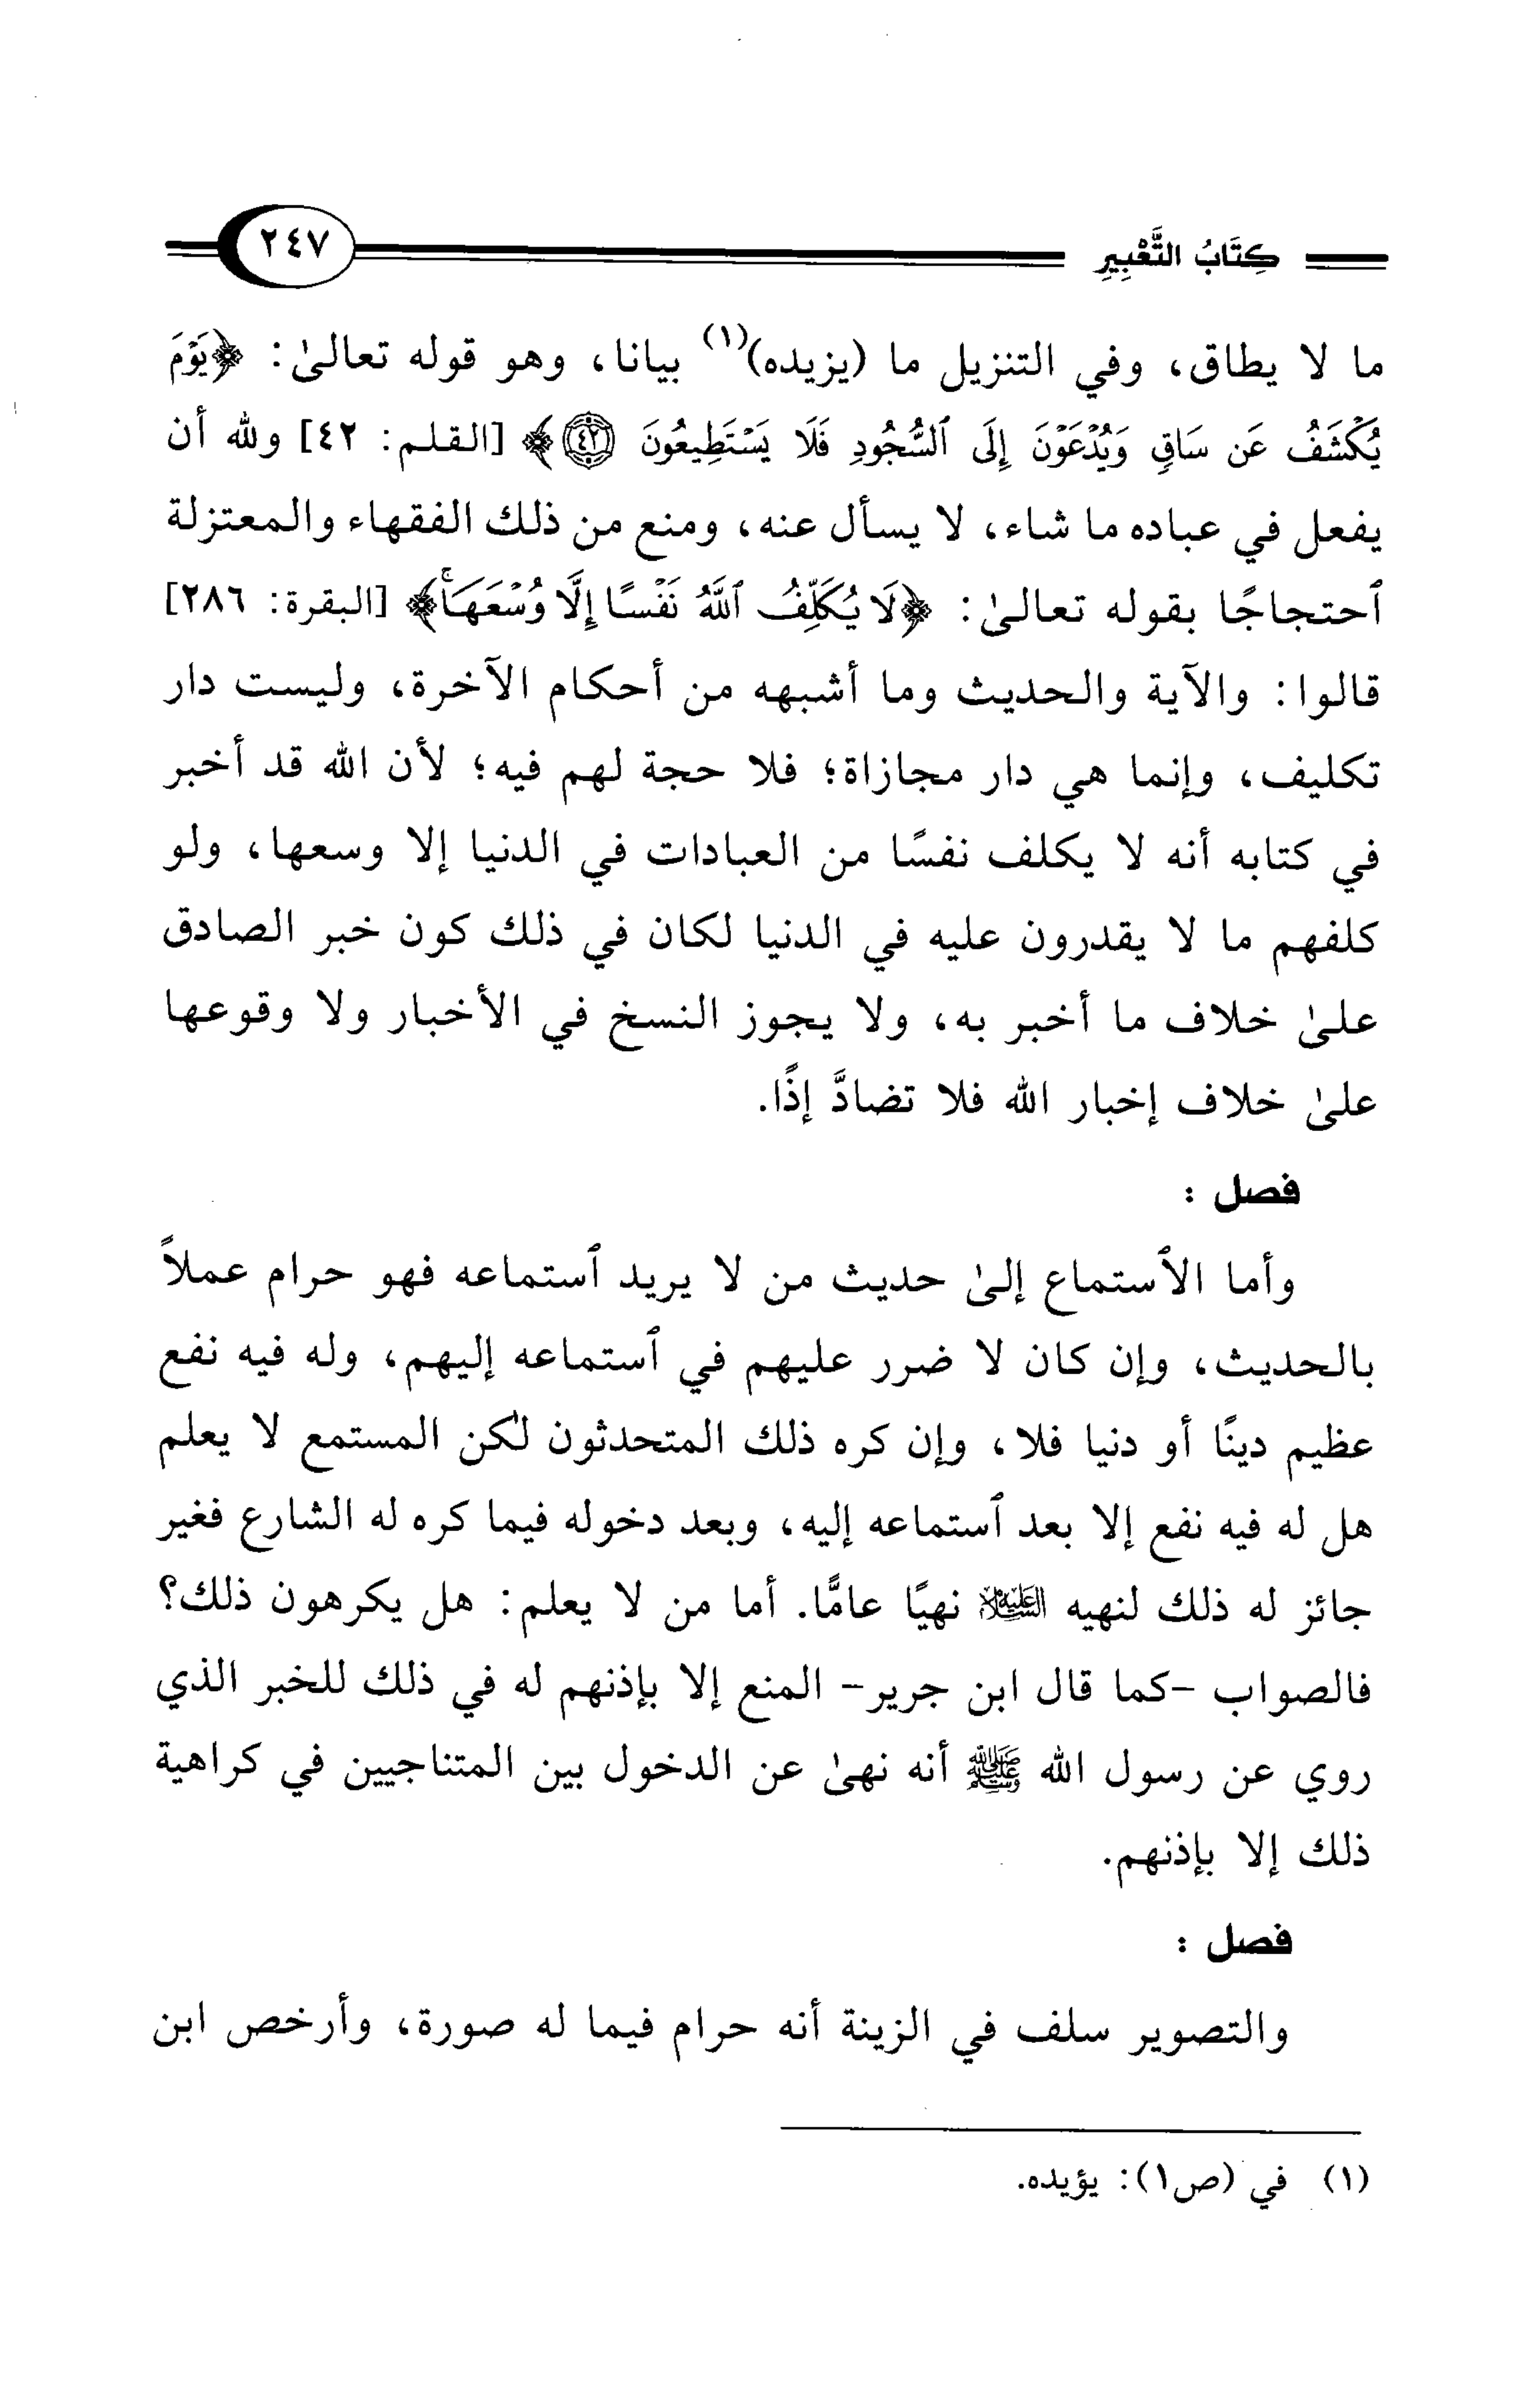 كِتَابُ التَّعْبِيرِ ٢٤٧
ما لا يطاق، وفي التنزيل ما (يزيده)(١) بيانا، وهو قوله تعالىٰ: ﴿يَوْمَ
يُكْشَفُ عَن سَاقٍ وَيُدْعَوْنَ إِلَى ٱلسُّجُودِ فَلَا يَسْتَطِيعُونَ ٤٢﴾ [القلم: ٤٢] ولله أن
يفعل في عباده ما شاء، لا يسأل عنه، ومنع من ذلك الفقهاء والمعتزلة
ٱحتجاجًا بقوله تعالىٰ: ﴿لَا يُكَلِّفُ ٱللَّهُ نَفْسًا إِلَّا وُسْعَهَاۚ﴾ [البقرة: ٢٨٦]
قالوا: والآية والحديث وما أشبهه من أحكام الآخرة، وليست دار
تكليف، وإنما هي دار مجازاة؛ فلا حجة لهم فيه؛ لأن الله قد أخبر
في كتابه أنه لا يكلف نفسًا من العبادات في الدنيا إلا وسعها، ولو
كلفهم ما لا يقدرون عليه في الدنيا لكان في ذلك كون خبر الصادق
علىٰ خلاف ما أخبر به، ولا يجوز النسخ في الأخبار ولا وقوعها
علىٰ خلاف إخبار الله فلا تضادَّ إذًا.
فصل :
وأما الاٌستماع إلىٰ حديث من لا يريد ٱستماعه فهو حرام عملاً
بالحديث، وإن كان لا ضرر عليهم في ٱستماعه إليهم، وله فيه نفع
عظيم دينًا أو دنيا فلا، وإن كره ذلك المتحدثون لكن المستمع لا يعلم
هل له فيه نفع إلا بعد ٱستماعه إليه، وبعد دخوله فيما كره له الشارع فغير
جائز له ذلك لنهيه عليه السلام نهيًا عامًّا. أما من لا يعلم: هل يكرهون ذلك؟
فالصواب -كما قال ابن جرير- المنع إلا بإذنهم له في ذلك للخبر الذي
روي عن رسول الله ﷺ أنه نهىٰ عن الدخول بين المتناجيين في كراهية
ذلك إلا بإذنهم.
فصل :
والتصوير سلف في الزينة أنه حرام فيما له صورة، وأرخص ابن
(١) في (ص١): يؤيده.